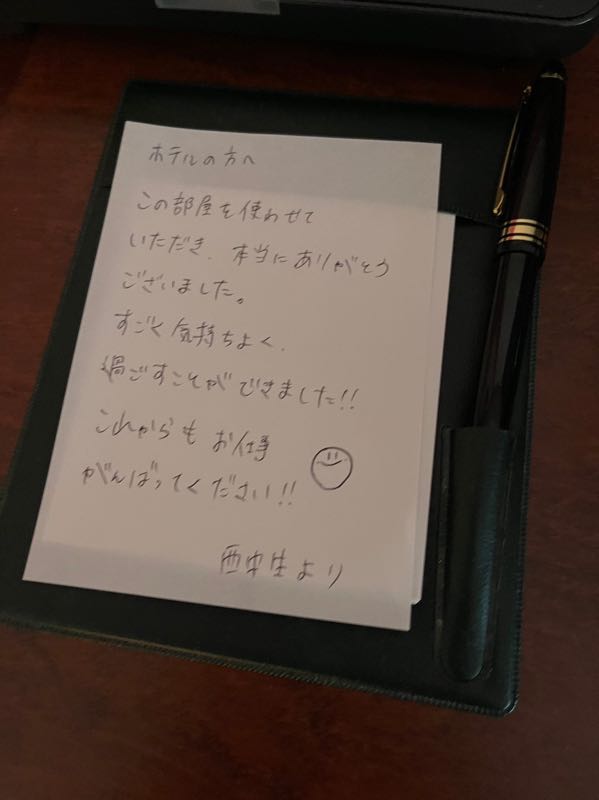 ホテルの方へ
この部屋を使わせて
いただき、本当にありがとう
ございました。
すごく気持ちよく、
過ごすことができました!!
これからもお仕事
がんばってください!!
西中生より